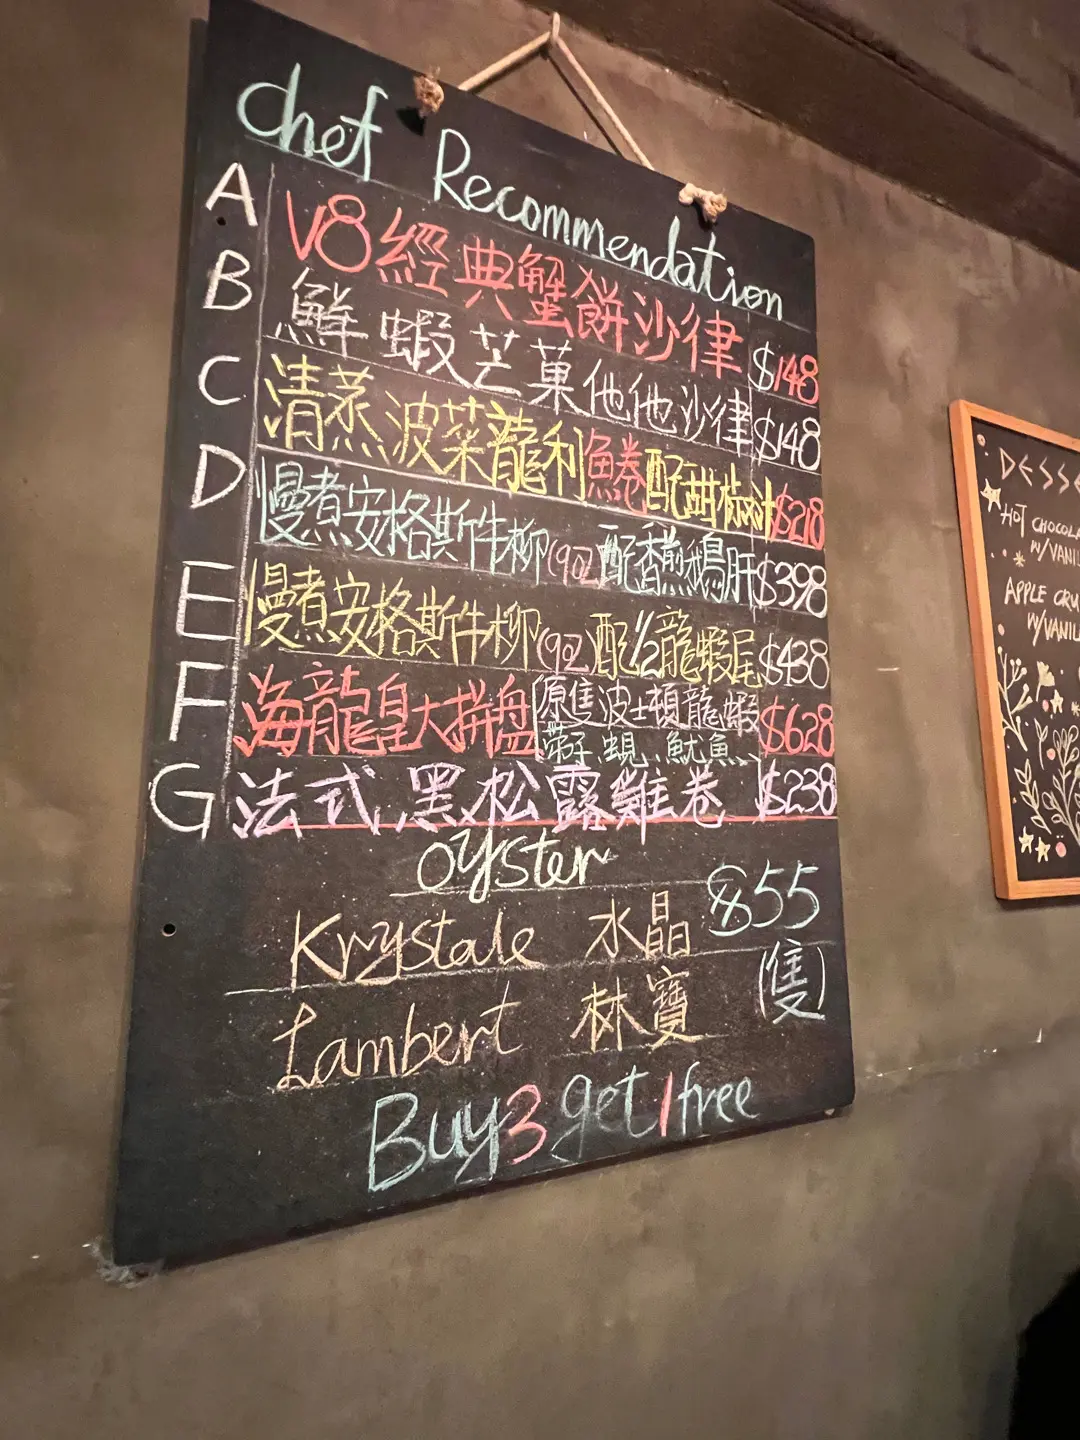 Chef Recommendation
A V8經典蟹餅沙律 $148
B 鮮蝦芒菓他他沙律 $148
C 清蒸波菜龍利魚卷配甜椒汁 $218
D 慢煮安格斯牛柳(9oz)配香煎鵝肝 $398
E 慢煮安格斯牛柳(9oz)配1/2龍蝦尾 $438
F 海龍皇大拼盤 原隻波士頓龍蝦 $628
帶子、蜆、魷魚、
G 法式黑松露雞卷 $238
Oyster
Krystale 水晶 $55
Lambert 林寶 (隻)
Buy 3 get 1 free
DESSE
HOT CHOCOLA
W/VANIL
APPLE CRU
W/VANIL